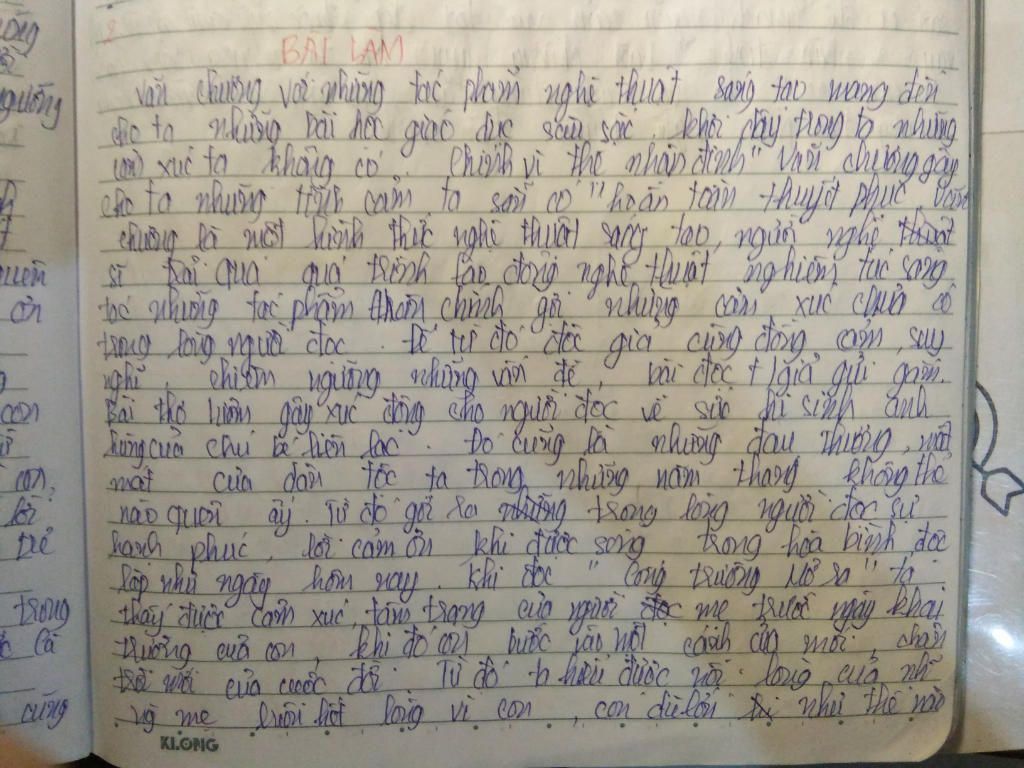 BÀI LÀM
văn chương với những tác phẩm nghệ thuật sáng tạo mang đến
cho ta những bài học giáo dục sâu sắc. khơi dậy trong ta những
cảm xúc ta không có. chính vì thế nhận định "Văn chương gây
cho ta những tình cảm ta sẵn có" hoàn toàn thuyết phục. Văn
chương là một hình thức nghệ thuật sáng tạo, người nghệ thuật
sĩ trải qua quá trình lao động nghệ thuật nghiêm túc sáng
tác những tác phẩm hoàn chỉnh gợi những cảm xúc chưa có
trong lòng người đọc. Để từ đó độc giả cùng đồng cảm, suy
nghĩ, chiêm ngưỡng những vấn đề, bài đọc giả gửi gắm.
Bài thơ luôn gây xúc động cho người đọc về sức hi sinh anh
hùng của chú bé liên lạc. Đó cũng là những đau thương, mất
mát của dân tộc ta trong những năm tháng không thể
nào quên ấy. Từ đó gợi ra những trong lòng người đọc sự
hạnh phúc, lời cảm ơn khi được sống trong hòa bình độc
lập như ngày hôm nay. khi đọc "Cổng trường mở ra" ta
thấy được cảm xúc, tâm trạng của người đọc mẹ trước ngày khai
trường của con, khi đó con bước vào một cánh cửa mới, chân
trời mới của cuộc đời. Từ đó ta hiểu được nỗi lòng của
mẹ luôn hết lòng vì con, con dù lớn như thế nào
KLONG
ường
trong
cũng